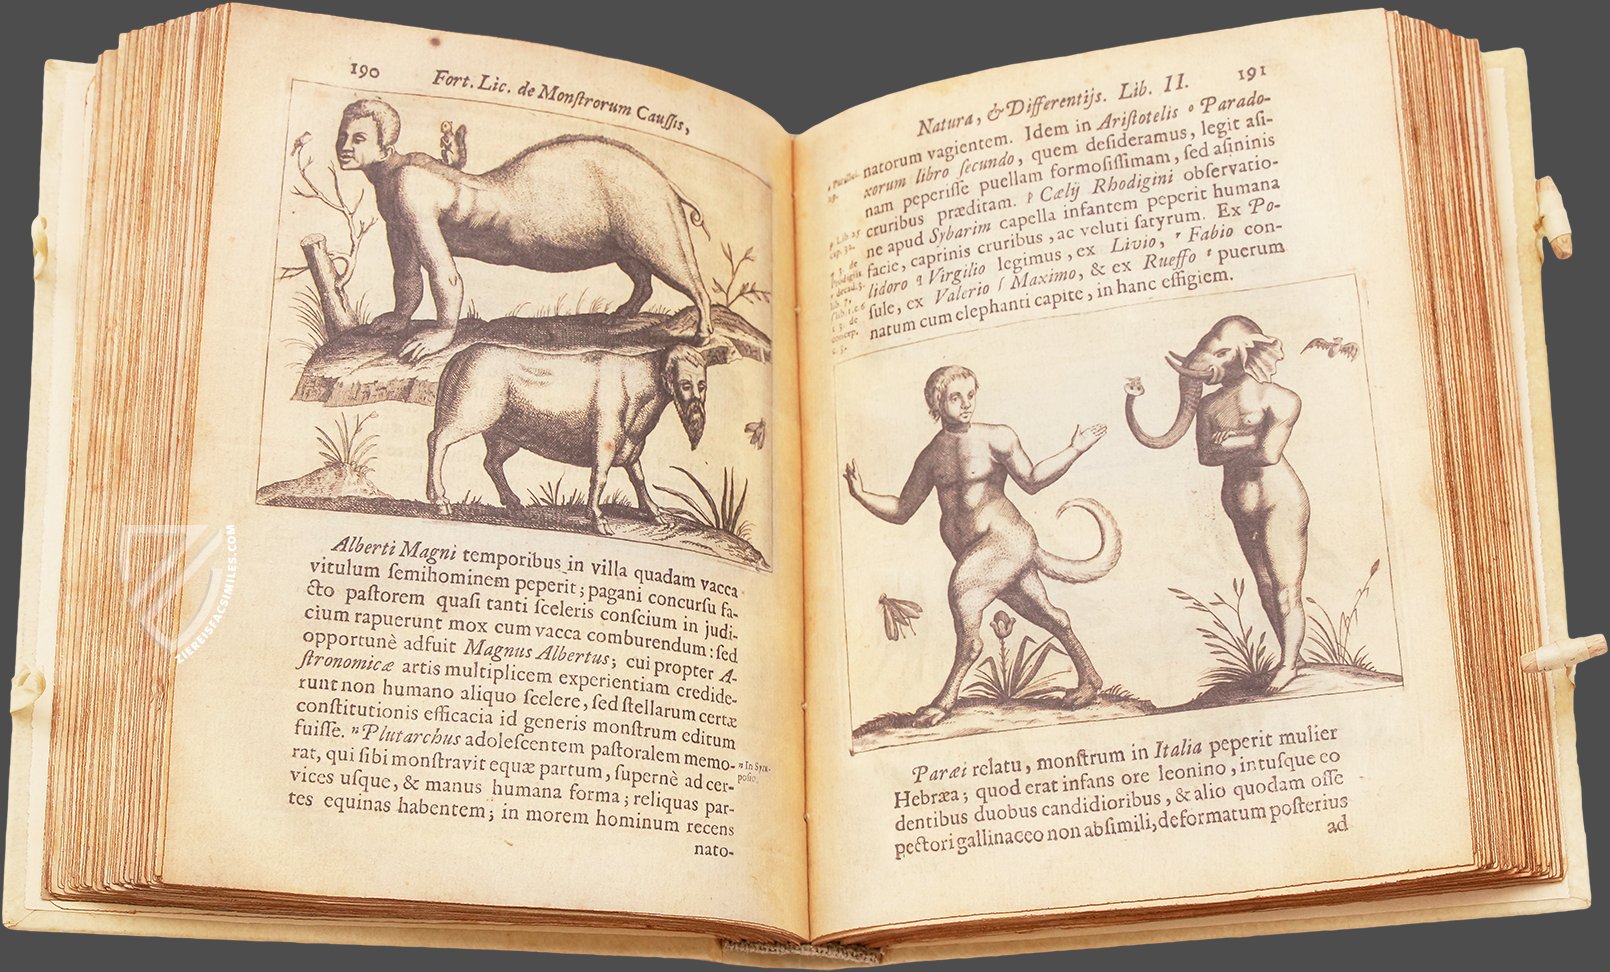 190
Fort. Lic. de Monſtrorum Cauſſis,
Alberti Magni temporibus in villa quadam vacca
vitulum ſemihominem peperit; pagani concurſu fa-
cto paſtorem quaſi tanti ſceleris conſcium in judi-
cium rapuerunt mox cum vacca comburendum: ſed
opportunè adfuit Magnus Albertus; cui propter A-
ſtronomicæ artis multiplicem experientiam credide-
runt non humano aliquo ſcelere, ſed ſtellarum certæ
conſtitutionis efficacia id generis monſtrum editum
fuiſſe. ⁿ Plutarchus adoleſcentem paſtoralem memo-
rat, qui ſibi monſtravit equæ partum, ſupernè ad cer-
vices uſque, & manus humana forma; reliquas par-
tes equinas habentem; in morem hominum recens
n In Sym-
poſio.
nato-
Natura, & Differentijs. Lib. II.
191
natorum vagientem. Idem in Ariſtotelis ᵒ Parado-
xorum libro ſecundo, quem deſideramus, legit aſi-
nam peperiſſe puellam formoſiſſimam, ſed aſininis
cruribus præditam. ᵖ Cælij Rhodigini obſervatio-
ne apud Sybarim capella infantem peperit humana
facie, caprinis cruribus, ac veluti ſatyrum. Ex Po-
lidoro ᑫ Virgilio legimus, ex Livio, ʳ Fabio con-
ſule, ex Valerio ſ Maximo, & ex Rueffo ᵗ puerum
natum cum elephanti capite, in hanc effigiem.
p Lib. 25
cap. 32.
q l. 3. de
Prodigiis
r decad. 3.
lib. 7.
ſ lib. 1. c. 6
t l. 5. de
concep.
c. 3.
Paræi relatu, monſtrum in Italia peperit mulier
Hebræa; quod erat infans ore leonino, intuſque eo
dentibus duobus candidioribus, & alio quodam oſſe
pectori gallinaceo non abſimili, deformatum poſterius
ad
ZIEREISFACSIMILES.COM